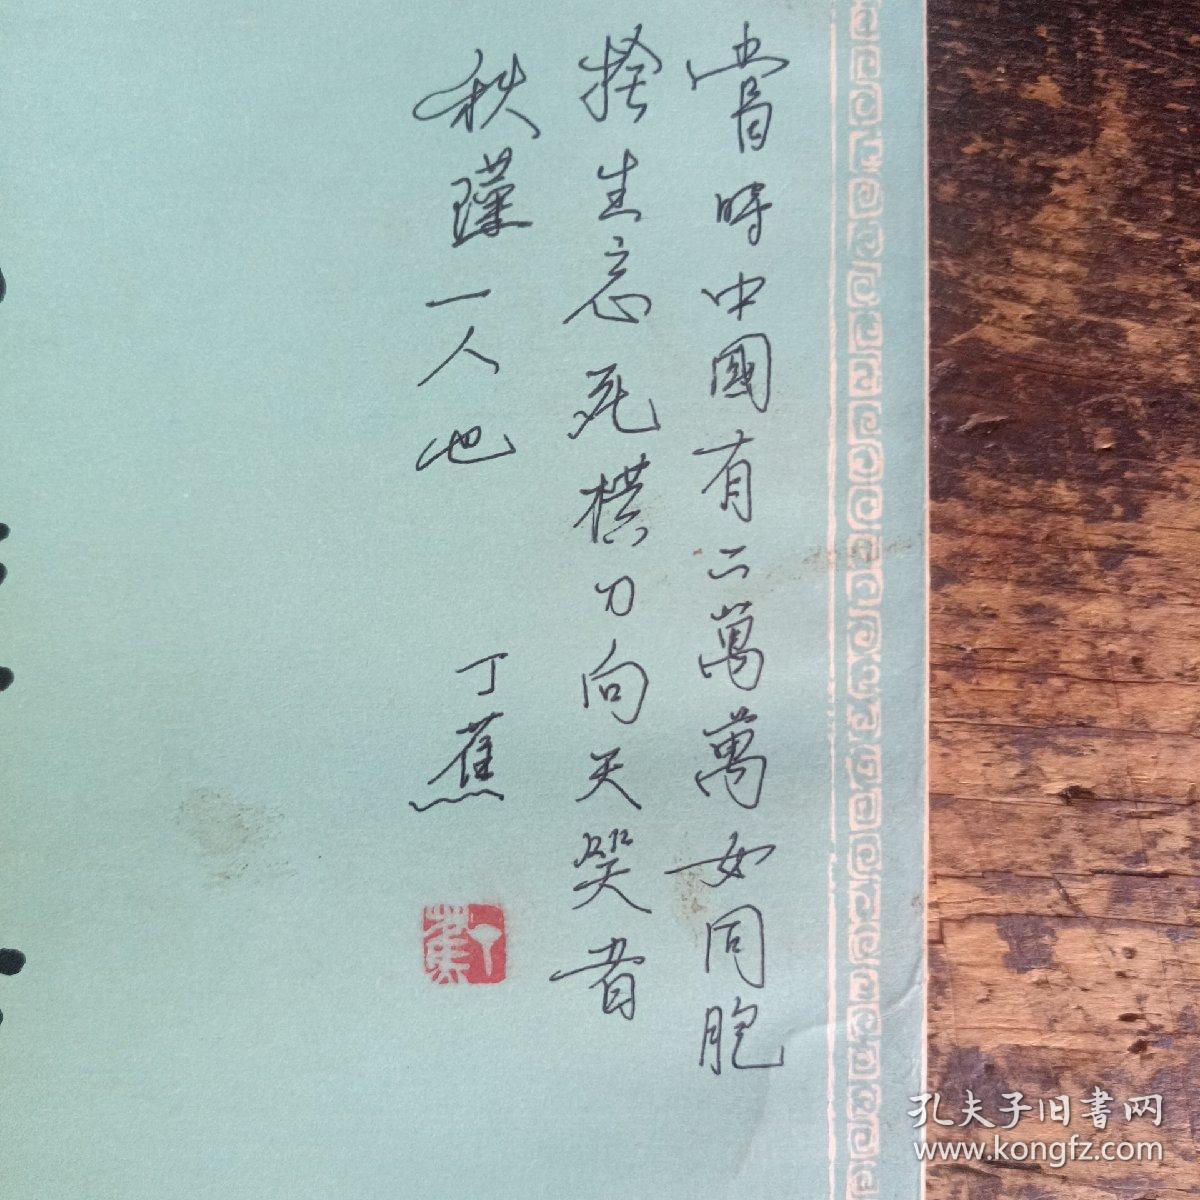 當時中國有二萬萬女同胞
捨生忘死橫刀向天笑者
秋瑾一人也
丁蕉
丁蕉
孔夫子旧書网
www.kongfz.com